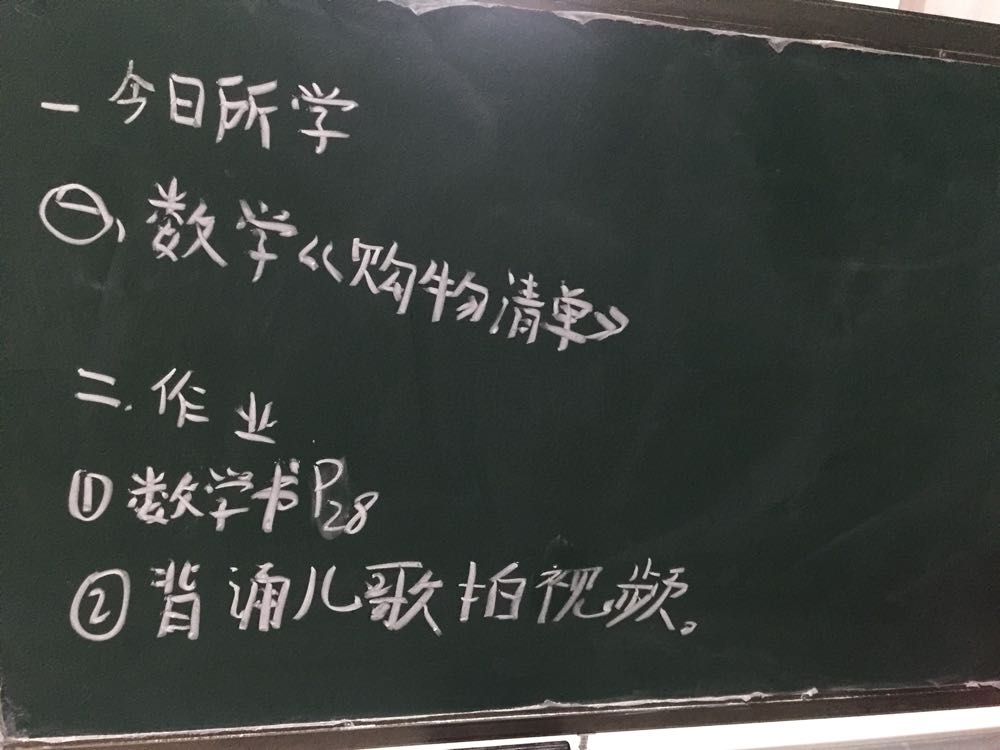 一 今日所学
㊀、数学《购物清单》
二.作业
①数学书P28
②背诵儿歌拍视频。